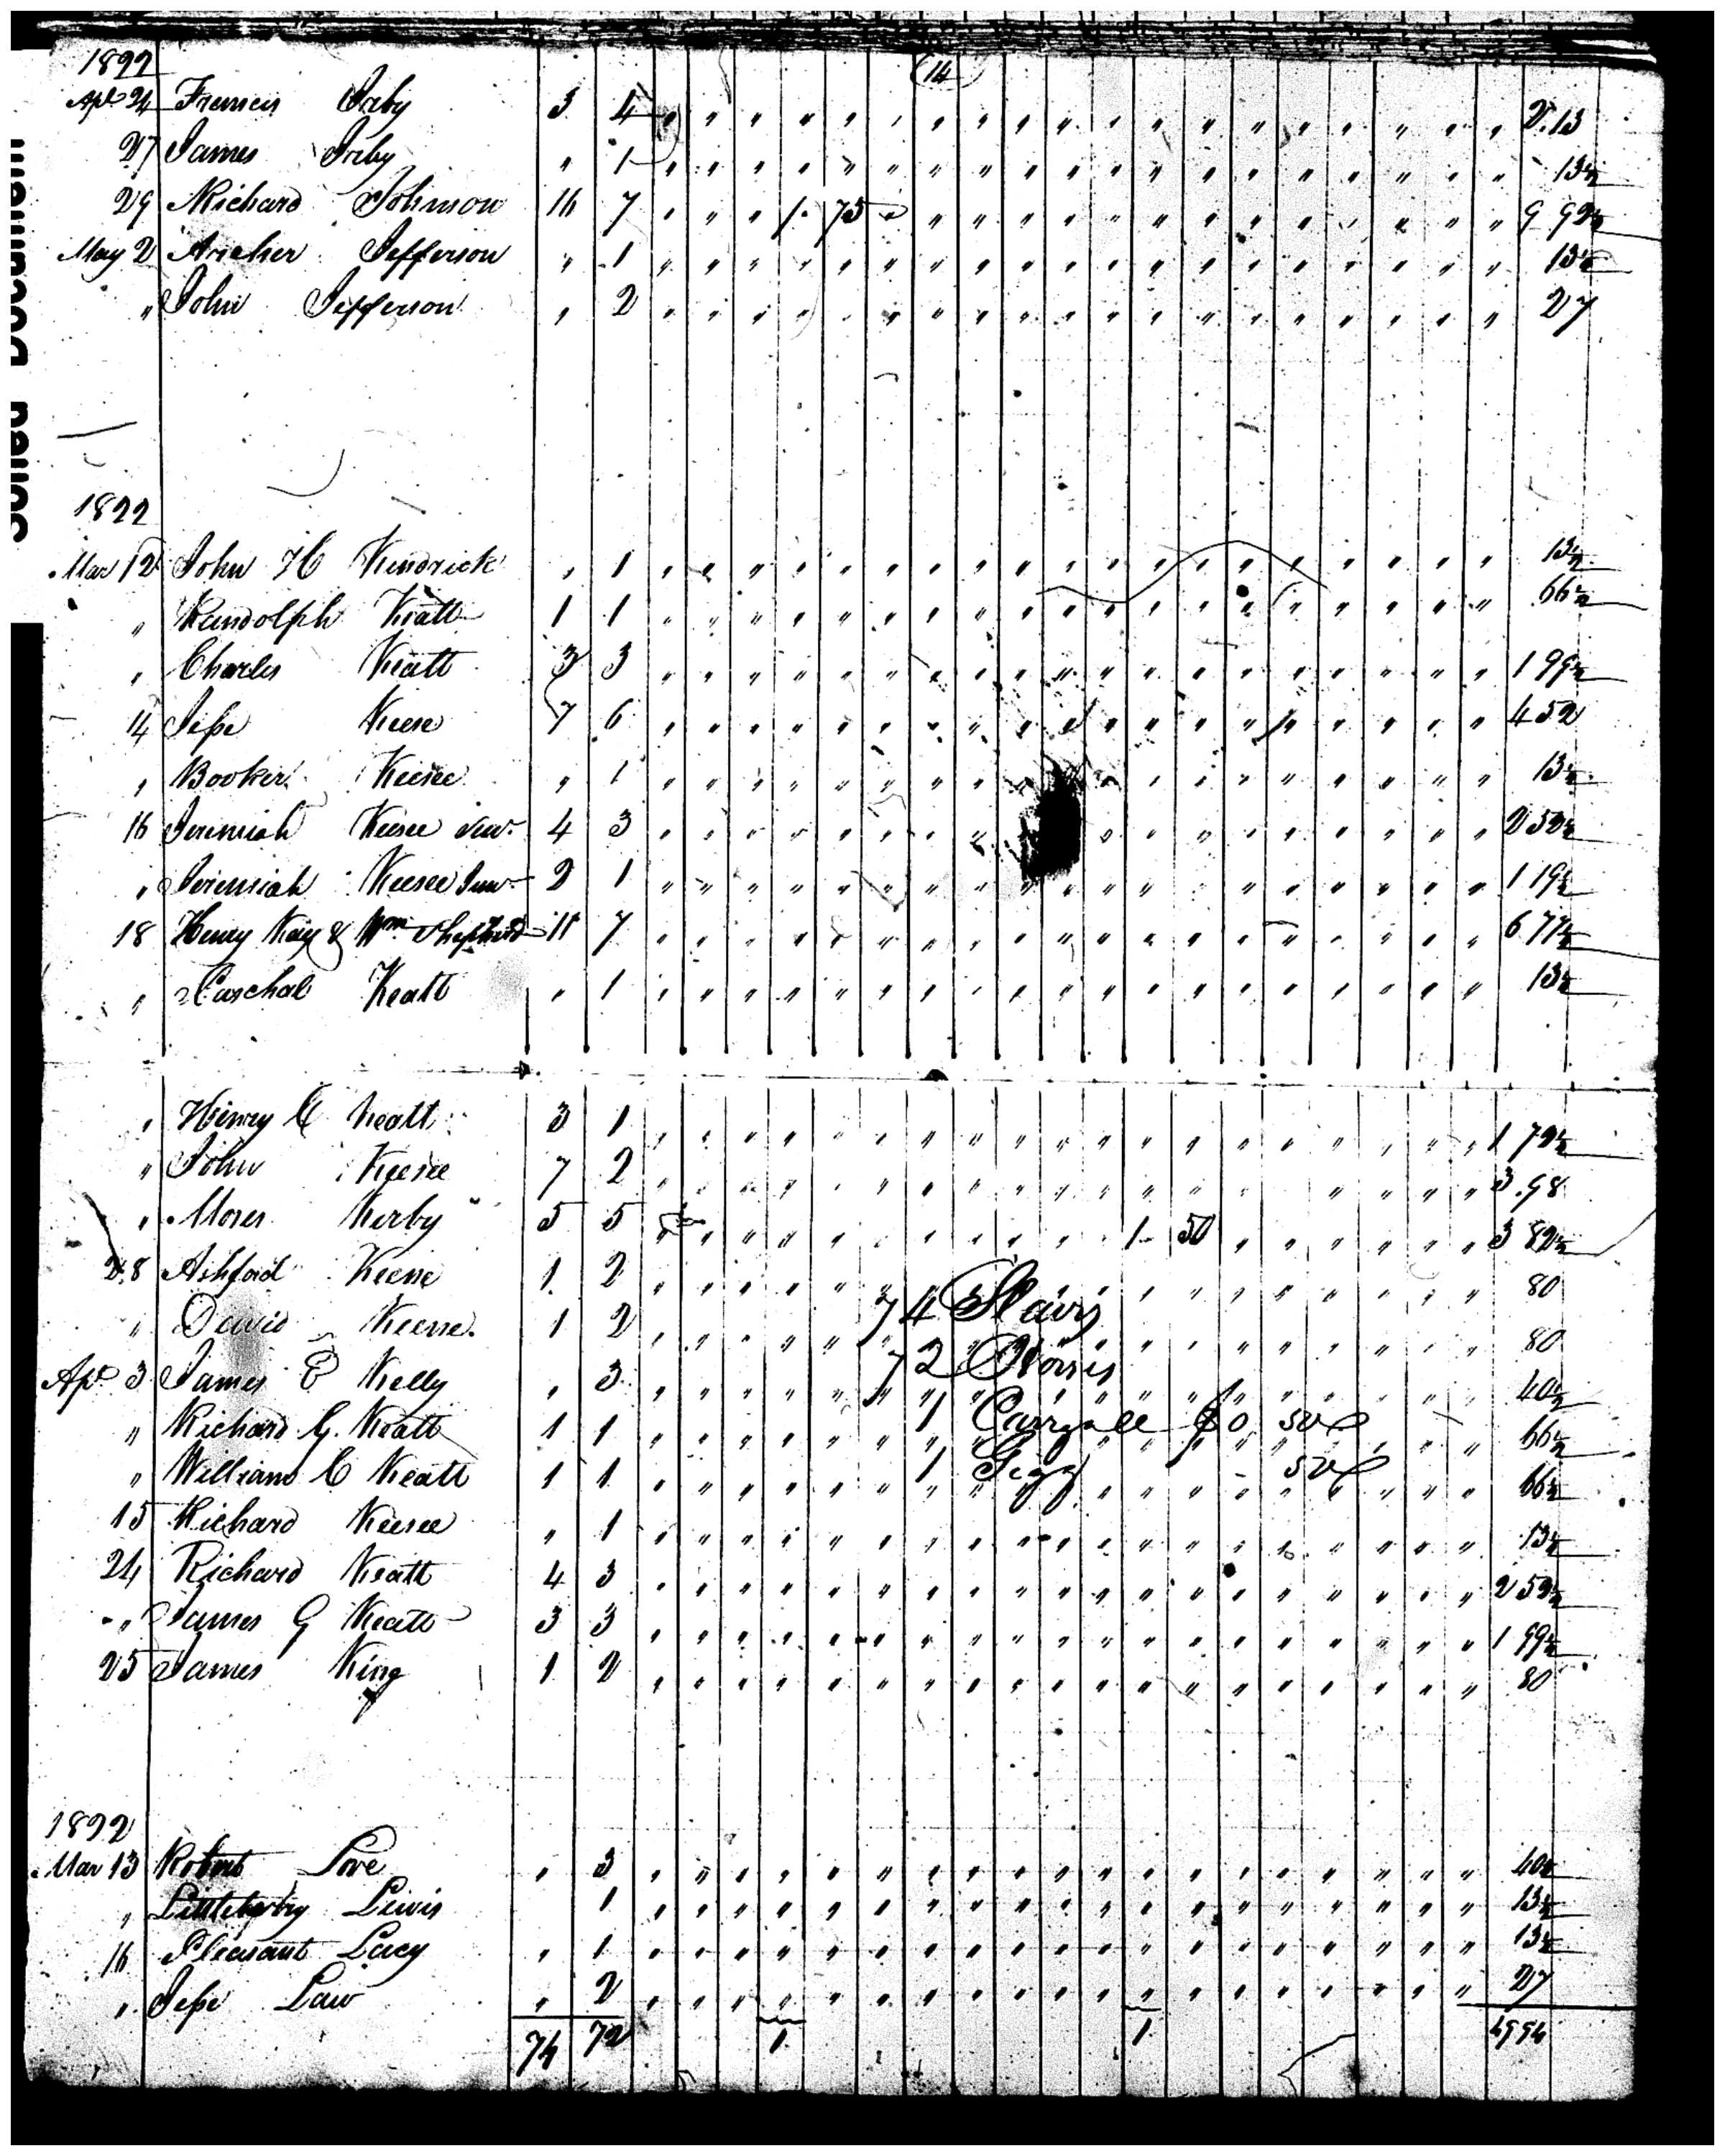 (14)
1822
Apl 24 Francis Irby 3 4 " " " " " " " " " " " " " " " " " " " 2.13
27 James Irby " 1 " " " " " " " " " " " " " " " " " " " 13½
29 Richard Johnson 16 7 " " " 1. 75 " " " " " " " " " " " " " " 9 92½
May 2 Archer Jefferson " 1 " " " " " " " " " " " " " " " " " " " 13½
" John Jefferson " 2 " " " " " " " " " " " " " " " " " " " 27
1822
Mar 12 John H Kendrick " 1 " " " " " " " " " " " " " " " " " " " 13½
" Randolph Keatt 1 1 " " " " " " " " " " " " " " " " " " " 66½
" Charles Keatt 3 3 " " " " " " " " " " " " " " " " " " " 1 99½
14 Jesse Keese 7 6 " " " " " " " " " " " " " " " " " " " 4 52
" Booker Keesee " 1 " " " " " " " " " " " " " " " " " " " 13½
16 Jeremiah Keesee Senr. 4 3 " " " " " " " " " " " " " " " " " " " 2 52½
" Jeremiah Keesee Junr 2 1 " " " " " " " " " " " " " " " " " " " 1 19½
18 Henry Kay & Wm Shepherd 11 7 " " " " " " " " " " " " " " " " " " " 6 77½
" Paschal Keatt " 1 " " " " " " " " " " " " " " " " " " " 13½
" Henry C Keatt 3 1 " " " " " " " " " " " " " " " " " " " 1 72½
" John Keesee 7 2 " " " " " " " " " " " " " " " " " " " 3.98
" Moses Kerby 5 5 " " " " " " " " " " " 1 50 " " " " " " 3 82½
28 Ashford Keese 1 2 " " " " " " " " " " " " " " " " " " " 80
74 Slaves
" David Keese 1 2 " " " " " " " " " " " " " " " " " " " 80
72 Horses
Apl 3 James E Kelly " 3 " " " " " " " " " " " " " " " " " " " 40½
1 Carryall $0 50
" Richard G. Keatt 1 1 " " " " " " " " " " " " " " " " " " " 66½
1 Gigg 50
" William C Keatt 1 1 " " " " " " " " " " " " " " " " " " " 66½
15 Richard Keesee " 1 " " " " " " " " " " " " " " " " " " " 13½
24 Richard Keatt 4 3 " " " " " " " " " " " " " " " " " " " 2 52½
" James G Keatt 3 3 " " " " " " " " " " " " " " " " " " " 1 99½
25 James King 1 2 " " " " " " " " " " " " " " " " " " " 80
1822
Mar 13 Robert Love " 3 " " " " " " " " " " " " " " " " " " " 40½
" Littleberry Lewis 1 " " " " " " " " " " " " " " " " " " " 13½
16 Pleasant Lacy " 1 " " " " " " " " " " " " " " " " " " " 13½
" Jesse Law " 2 " " " " " " " " " " " " " " " " " " " 27
74 72 1 1 4994